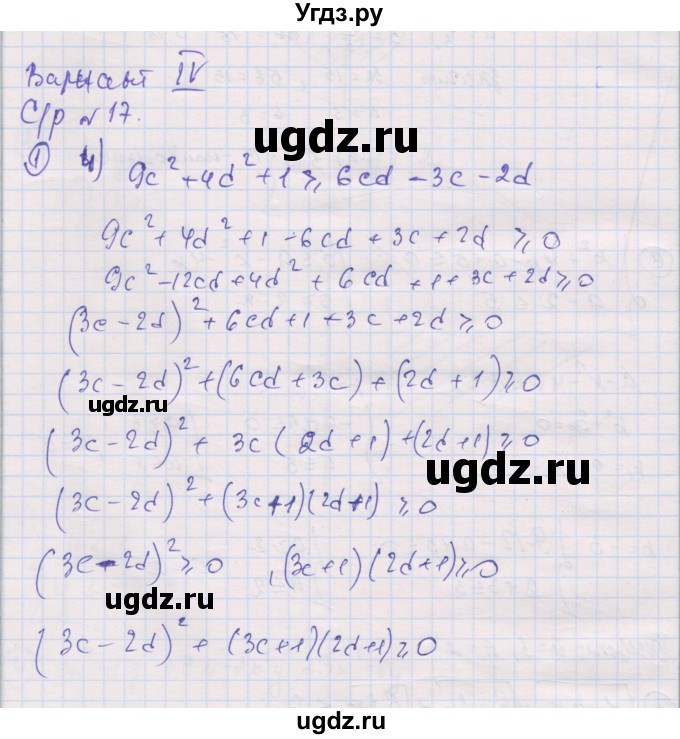 Угдз.ру
Вариант IV
С/р № 17.
① 4) 9c² + 4d² + 1 ⩾ 6cd - 3c - 2d
ugdz.ru
9c² + 4d² + 1 - 6cd + 3c + 2d ⩾ 0
9c² - 12cd + 4d² + 6cd + 1 + 3c + 2d ⩾ 0
(3c - 2d)² + 6cd + 1 + 3c + 2d ⩾ 0
(3c - 2d)² + (6cd + 3c) + (2d + 1) ⩾ 0
ugdz.ru
(3c - 2d)² + 3c(2d + 1) + (2d + 1) ⩾ 0
ugdz.ru
(3c - 2d)² + (3c + 1)(2d + 1) ⩾ 0
(3c - 2d)² ⩾ 0 , (3c + 1)(2d + 1) ⩾ 0
ugdz.ru
(3c - 2d)² + (3c + 1)(2d + 1) ⩾ 0
ugdz.ru
ugdz.ru